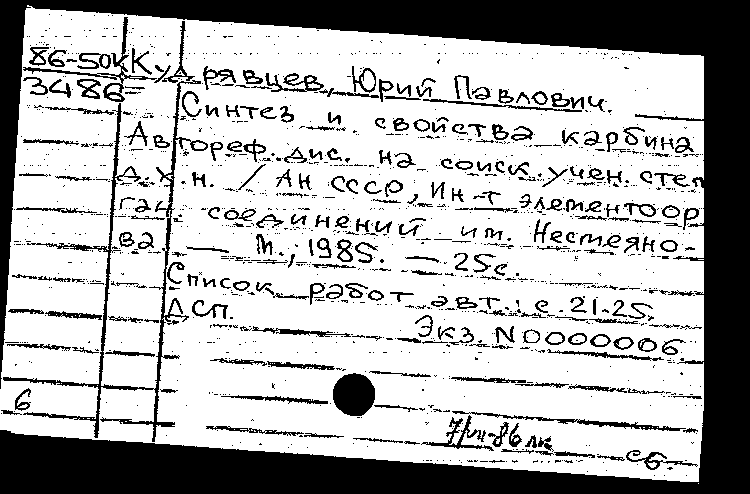 86-50к Кудрявцев, Юрий Павлович.
3486= Синтез и свойства карбина
Автореф. дис. на соиск. учен. степ
д.х.н. / АН СССР, Ин-т элементоор
ган. соединений им. Несмеяно-
ва. — М., 1985. — 25с.
Список работ авт.: с. 21-25.
ДСП. Экз. N0000006
6